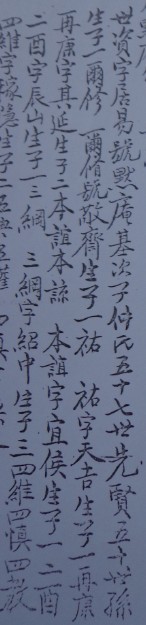 世資字居易號默庵基次子仲氏五十七世先賢五十世孫
生子一爾修　爾脩號敬齊生子一祐　祐字天吉生子一再康
再康字其延生子二本誼本諒　本誼字宜侯生子一二酉
二酉字辰山生子一三綱　三綱字紹中生子三四維四慎四教
四維字